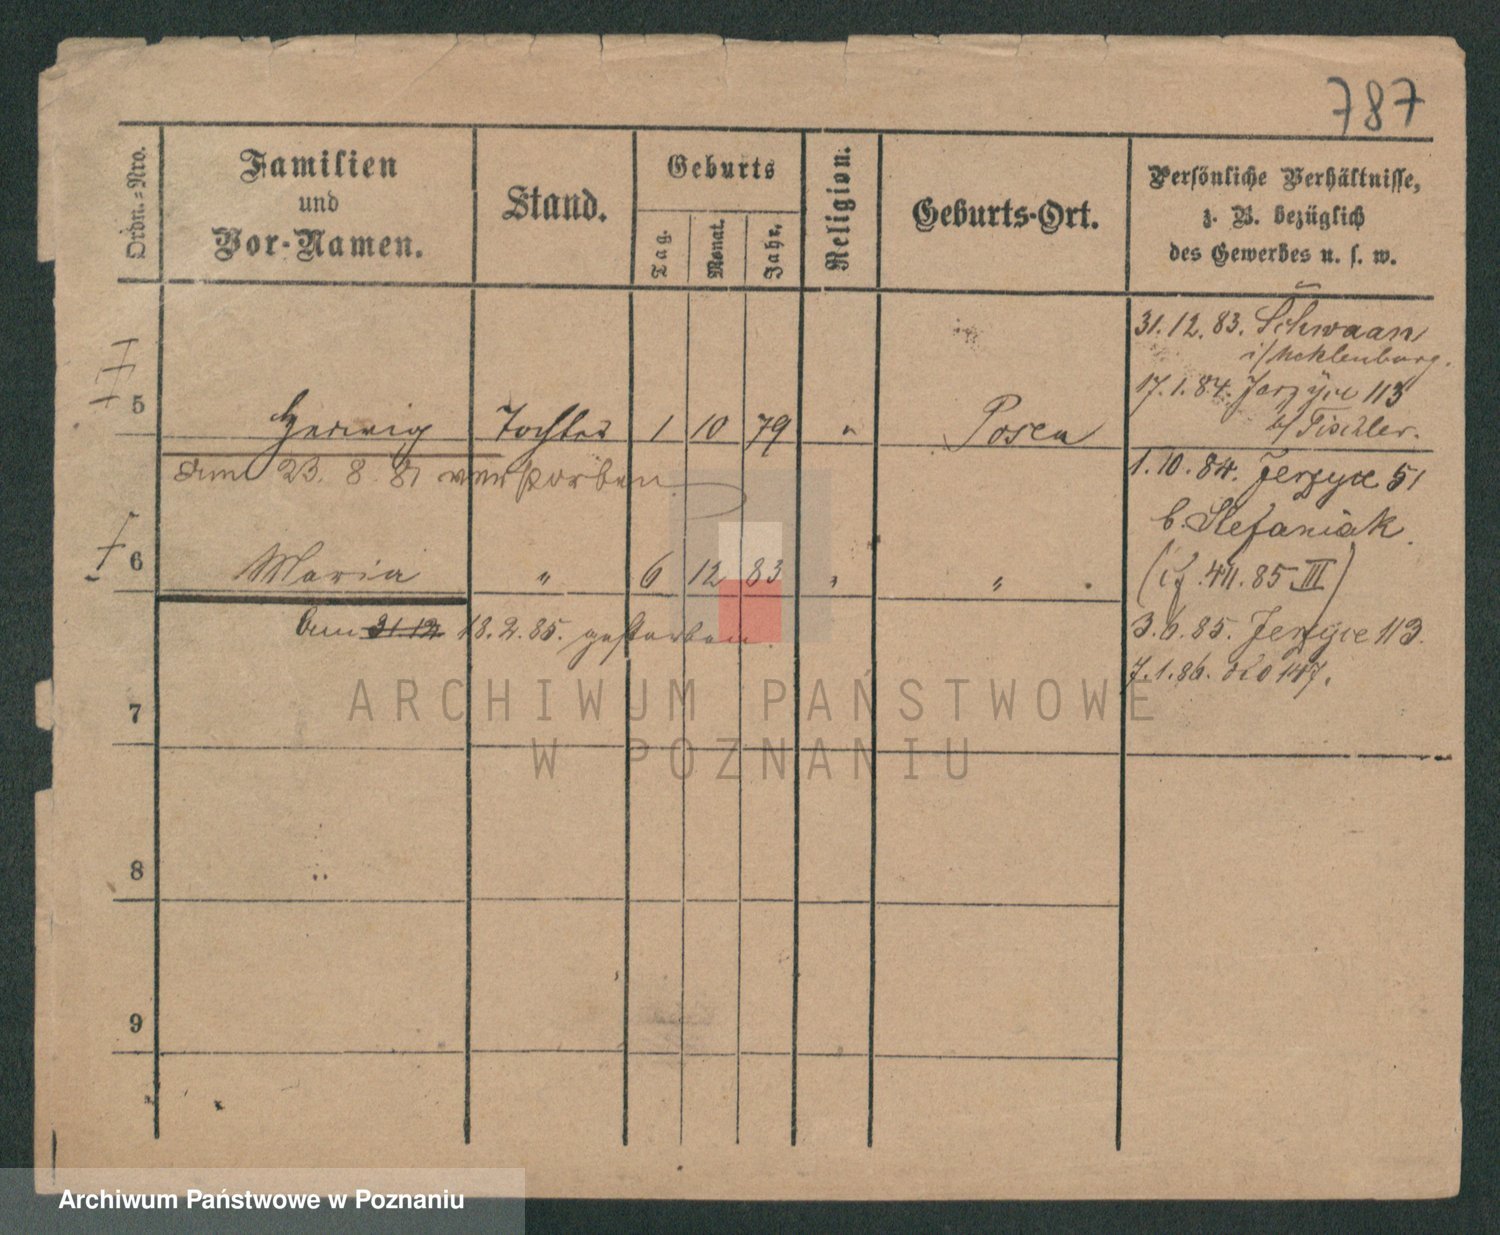 787
Ordn.-Nro.
Familien
und
Vor-Namen.
Stand.
Geburts
Tag.
Monat.
Jahr.
Religion.
Geburts-Ort.
Persönliche Verhältnisse,
z. B. bezüglich
des Gewerbes u. s. w.
31.12.83. Schwaan
i/Meklenburg.
17.1.84. Jerzyce 113
b/ Tischler.
5 Hedwig Tochter 1 10 79 " Posen
am 23. 8. 81 verstorben
1.10.84. Jerzyce 51
b. Stefaniak.
6 Maria " 6 12 83 " "
(cf. 411.85 III)
Am 31 12 18.2.85. gestorben.
3.6.85. Jerzyce 113.
7.1.86. dto 147.
7
8
9
ARCHIWUM PAŃSTWOWE
W POZNANIU
Archiwum Państwowe w Poznaniu